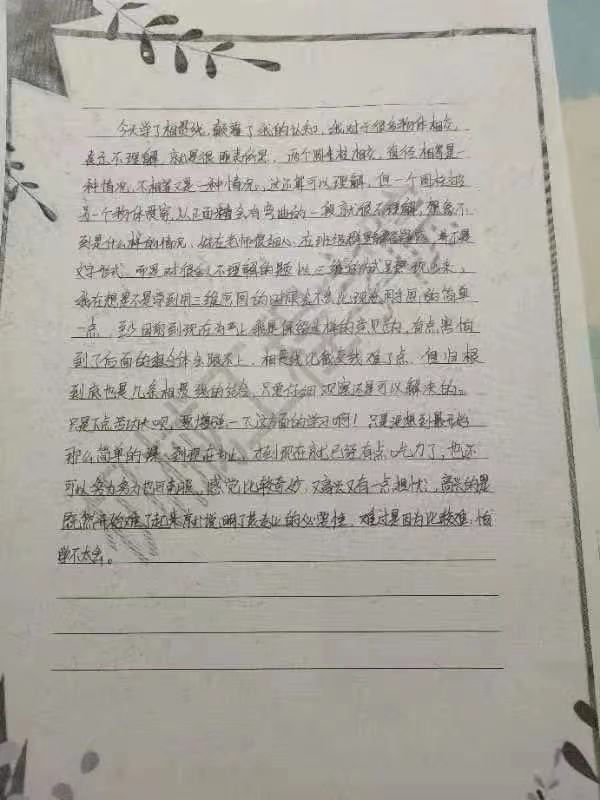 今天学了相贯线,颠覆了我的认知,我对于很多物体相交
表示不理解,就是很明表的思,两个圆柱相交,直径相等是一
种情况,不相等又是一种情况,这尚可以理解,但一个圆柱
另一个物体贯穿,从正面看会有弯曲的一段就很不理解,想象不
到是什么样的情况,好在老师很细心,在班级群里,并不是
文字形式,而是对很多人不理解的题以三维的形式呈现出来,
我在想是不是学到用三维画图的时候会不会比现在用时画的简单
一点,至少目前到现在为止我是保留这样的意见的,有点害怕
到了后面的组合体会跟不上,相贯线比截交线难了点,但归根
到底也是几条相贯线的结合,只要仔细观察还是可以解决的。
只是下点苦功夫呗,要增强一下这方面的学习啊!只是没想到最开始
那么简单的课,到现在为止,才到现在就已经有点吃力了,也还
可以努力努力也可,感觉比较奇妙,又高兴又有一点担忧,高兴的是
既然开始难了起来就说明了其专业的必要性,难过是因为比较难,怕
学不太会。